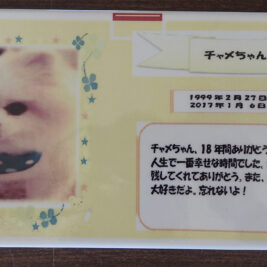 チャメちゃん
1999年2月27日
2017年1月 6日
チャメちゃん、18年間ありがとう
人生で一番幸せな時間でした。
残してくれてありがとう。また、
大好きだよ。忘れないよ！